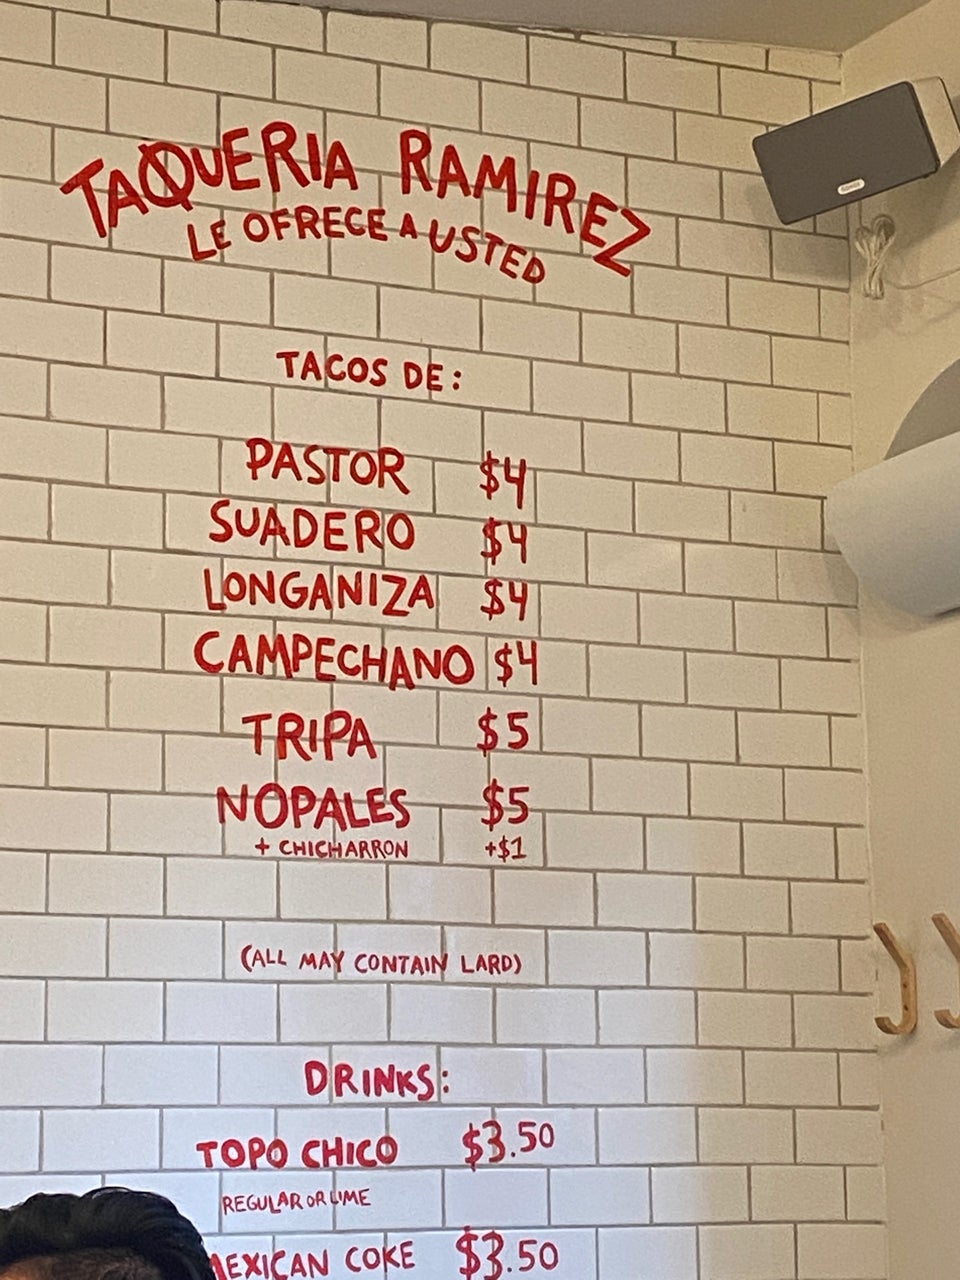 TAQUERIA RAMIREZ
LE OFRECE A USTED
TACOS DE:
PASTOR $4
SUADERO $4
LONGANIZA $4
CAMPECHANO $4
TRIPA $5
NOPALES $5
+ CHICHARRON +$1
(ALL MAY CONTAIN LARD)
DRINKS:
TOPO CHICO $3.50
REGULAR OR LIME
MEXICAN COKE $3.50
SONOS